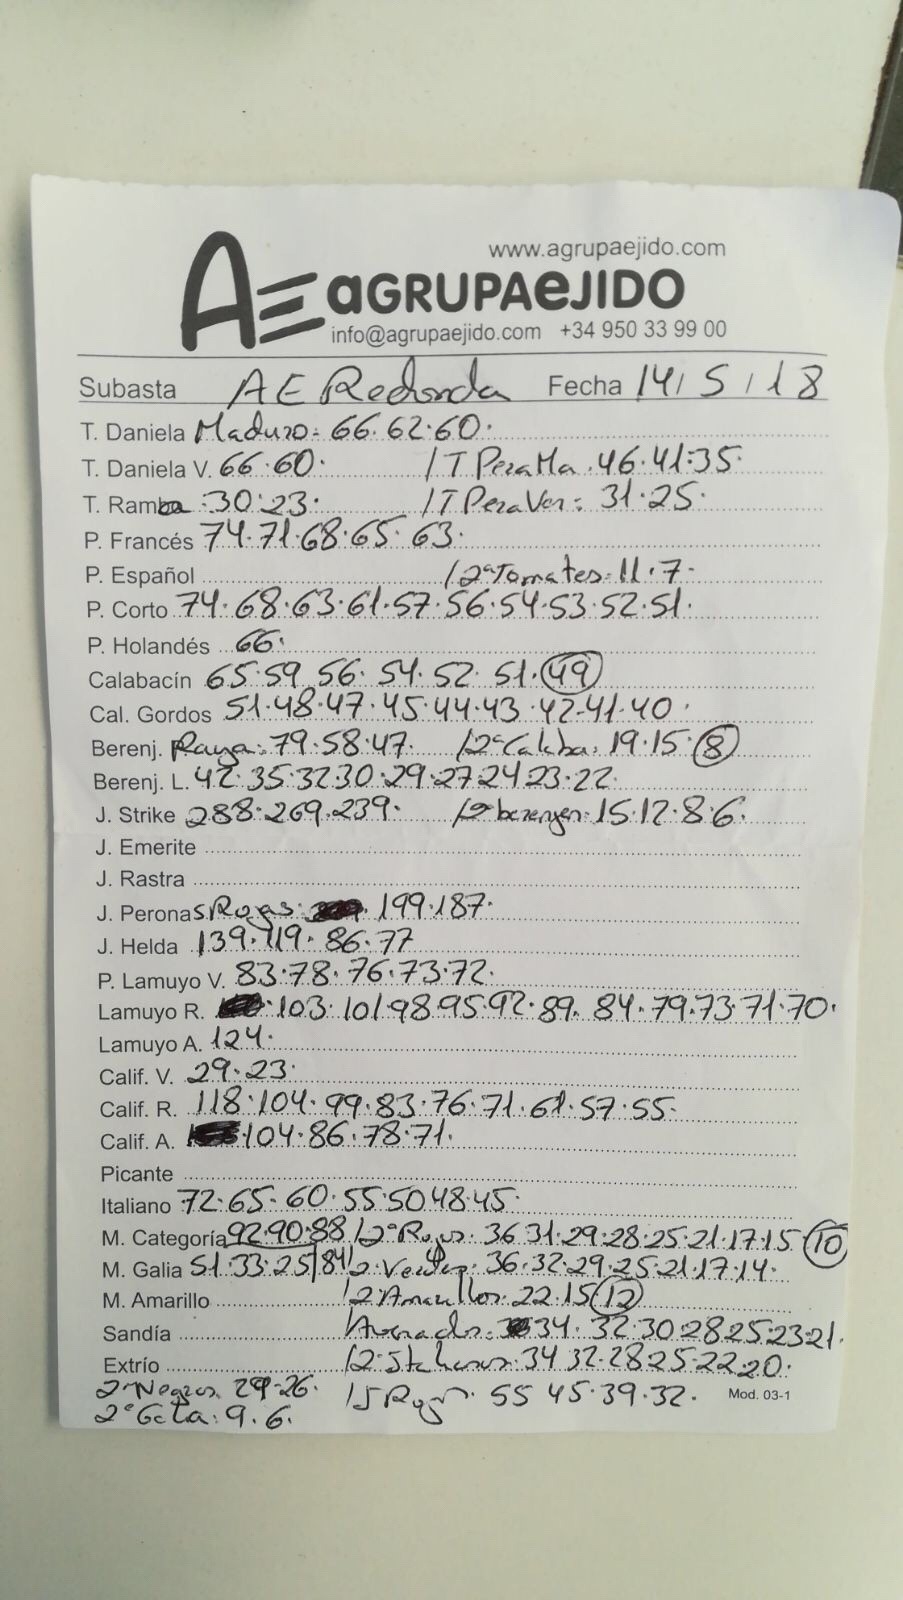 www.agrupaejido.com
AE aGRUPAeJIDO
info@agrupaejido.com +34 950 33 99 00
Subasta AE Redonda Fecha 14/5/18
T. Daniela Maduro: 66.62.60.
T. Daniela V. 66.60. /T Pera Ma. 46.41.35.
T. Ramba .30.23. /T Pera Ver: 31.25.
P. Francés 74.71.68.65.63.
P. Español /2ª Tomates: 11.7.
P. Corto 74.68.63.61.57.56.54.53.52.51.
P. Holandés 66.
Calabacín 65.59.56.54.52.51.49
Cal. Gordos 51.48.47.45.44.43.42.41.40.
Berenj. Raya: 79.58.47. /2ª Calaba: 19.15.8
Berenj. L. 42.35.32.30.29.27.24.23.22.
J. Strike 288.269.239. /2ª berenjen: 15.12.8.6.
J. Emerite
J. Rastra
J. Peronas Rojas: 199.187.
J. Helda 139.119.86.77
P. Lamuyo V. 83.78.76.73.72.
Lamuyo R. 103.101.98.95.92.89.84.79.73.71.70.
Lamuyo A. 124.
Calif. V. 29.23.
Calif. R. 118.104.99.83.76.71.61.57.55.
Calif. A. 104.86.78.71.
Picante
Italiano 72.65.60.55.50.48.45.
M. Categoría 92.90.88 /2ª Rojos. 36.31.29.28.25.21.17.15.10
M. Galia 51.33.25/84/2ª Verdes. 36.32.29.25.21.17.14.
M. Amarillo /2ª Amarillos: 22.15.12
Sandía 34.32.30.28.25.23.21.
Extrío 34.32.28.25.22.20.
2ª Negros. 26. /J Roja. 55.45.39.32. Mod. 03-1
2ª 9.6.